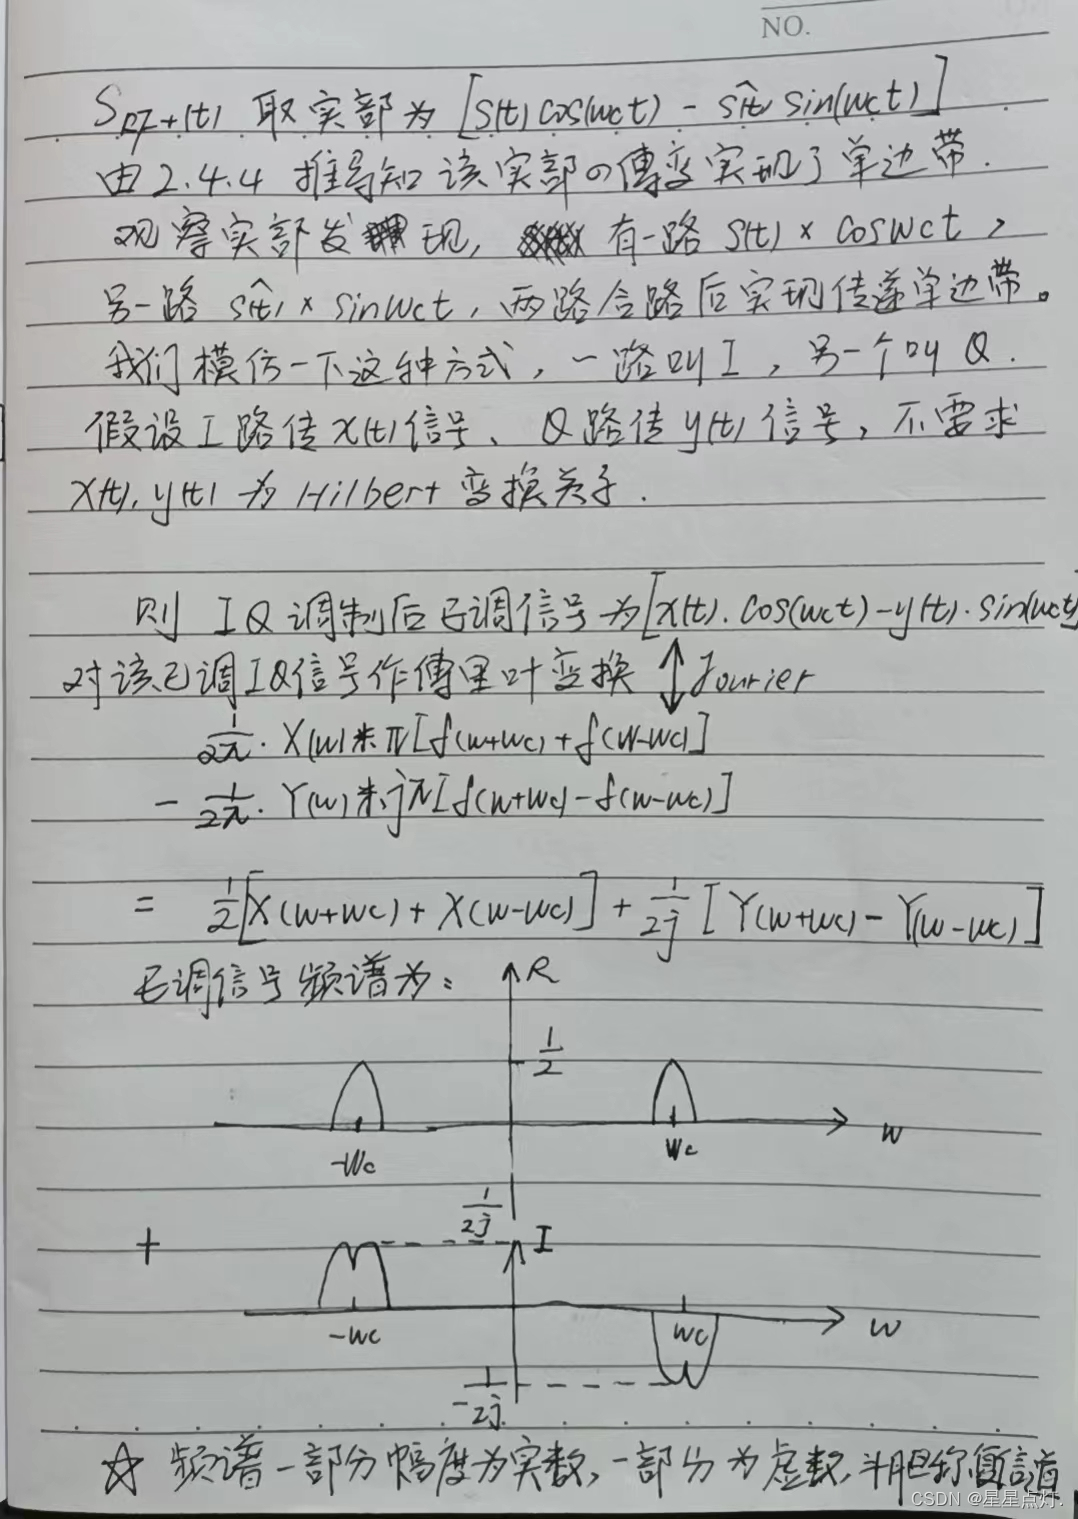 NO.
S_{RF+}(t) 取实部为 [S(t) cos(wct) - ŝ(t) sin(wct)]
由 2.4.4 推导知 该实部の傅变实现了单边带.
观察实部发现, 有一路 S(t) × coswct,
另一路 ŝ(t) × sinwct, 两路合路后实现传递单边带。
我们模仿一下这种方式, 一路叫 I, 另一个叫 Q.
假设 I 路传 x(t) 信号、Q 路传 y(t) 信号, 不要求
x(t), y(t) 为 Hilbert 变换关于.
则 IQ 调制后已调信号为[x(t).cos(wct)-y(t).sin(wct)
对该已调IQ信号作傅里叶变换 ↕ fourier
1/2π · X(w) * π[δ(w+wc)+δ(w-wc)]
- 1/2π · Y(w) * jπ[δ(w+wc)-δ(w-wc)]
= 1/2[X(w+wc) + X(w-wc)] + 1/2j [Y(w+wc) - Y(w-wc)]
已调信号频谱为:
R
1/2
-wc
wc
w
1/2j
+
I
-wc
wc
w
-1/2j
☆ 频谱一部分幅度为实数, 一部分为虚数, 斗胆称复信道
CSDN @星星点灯.